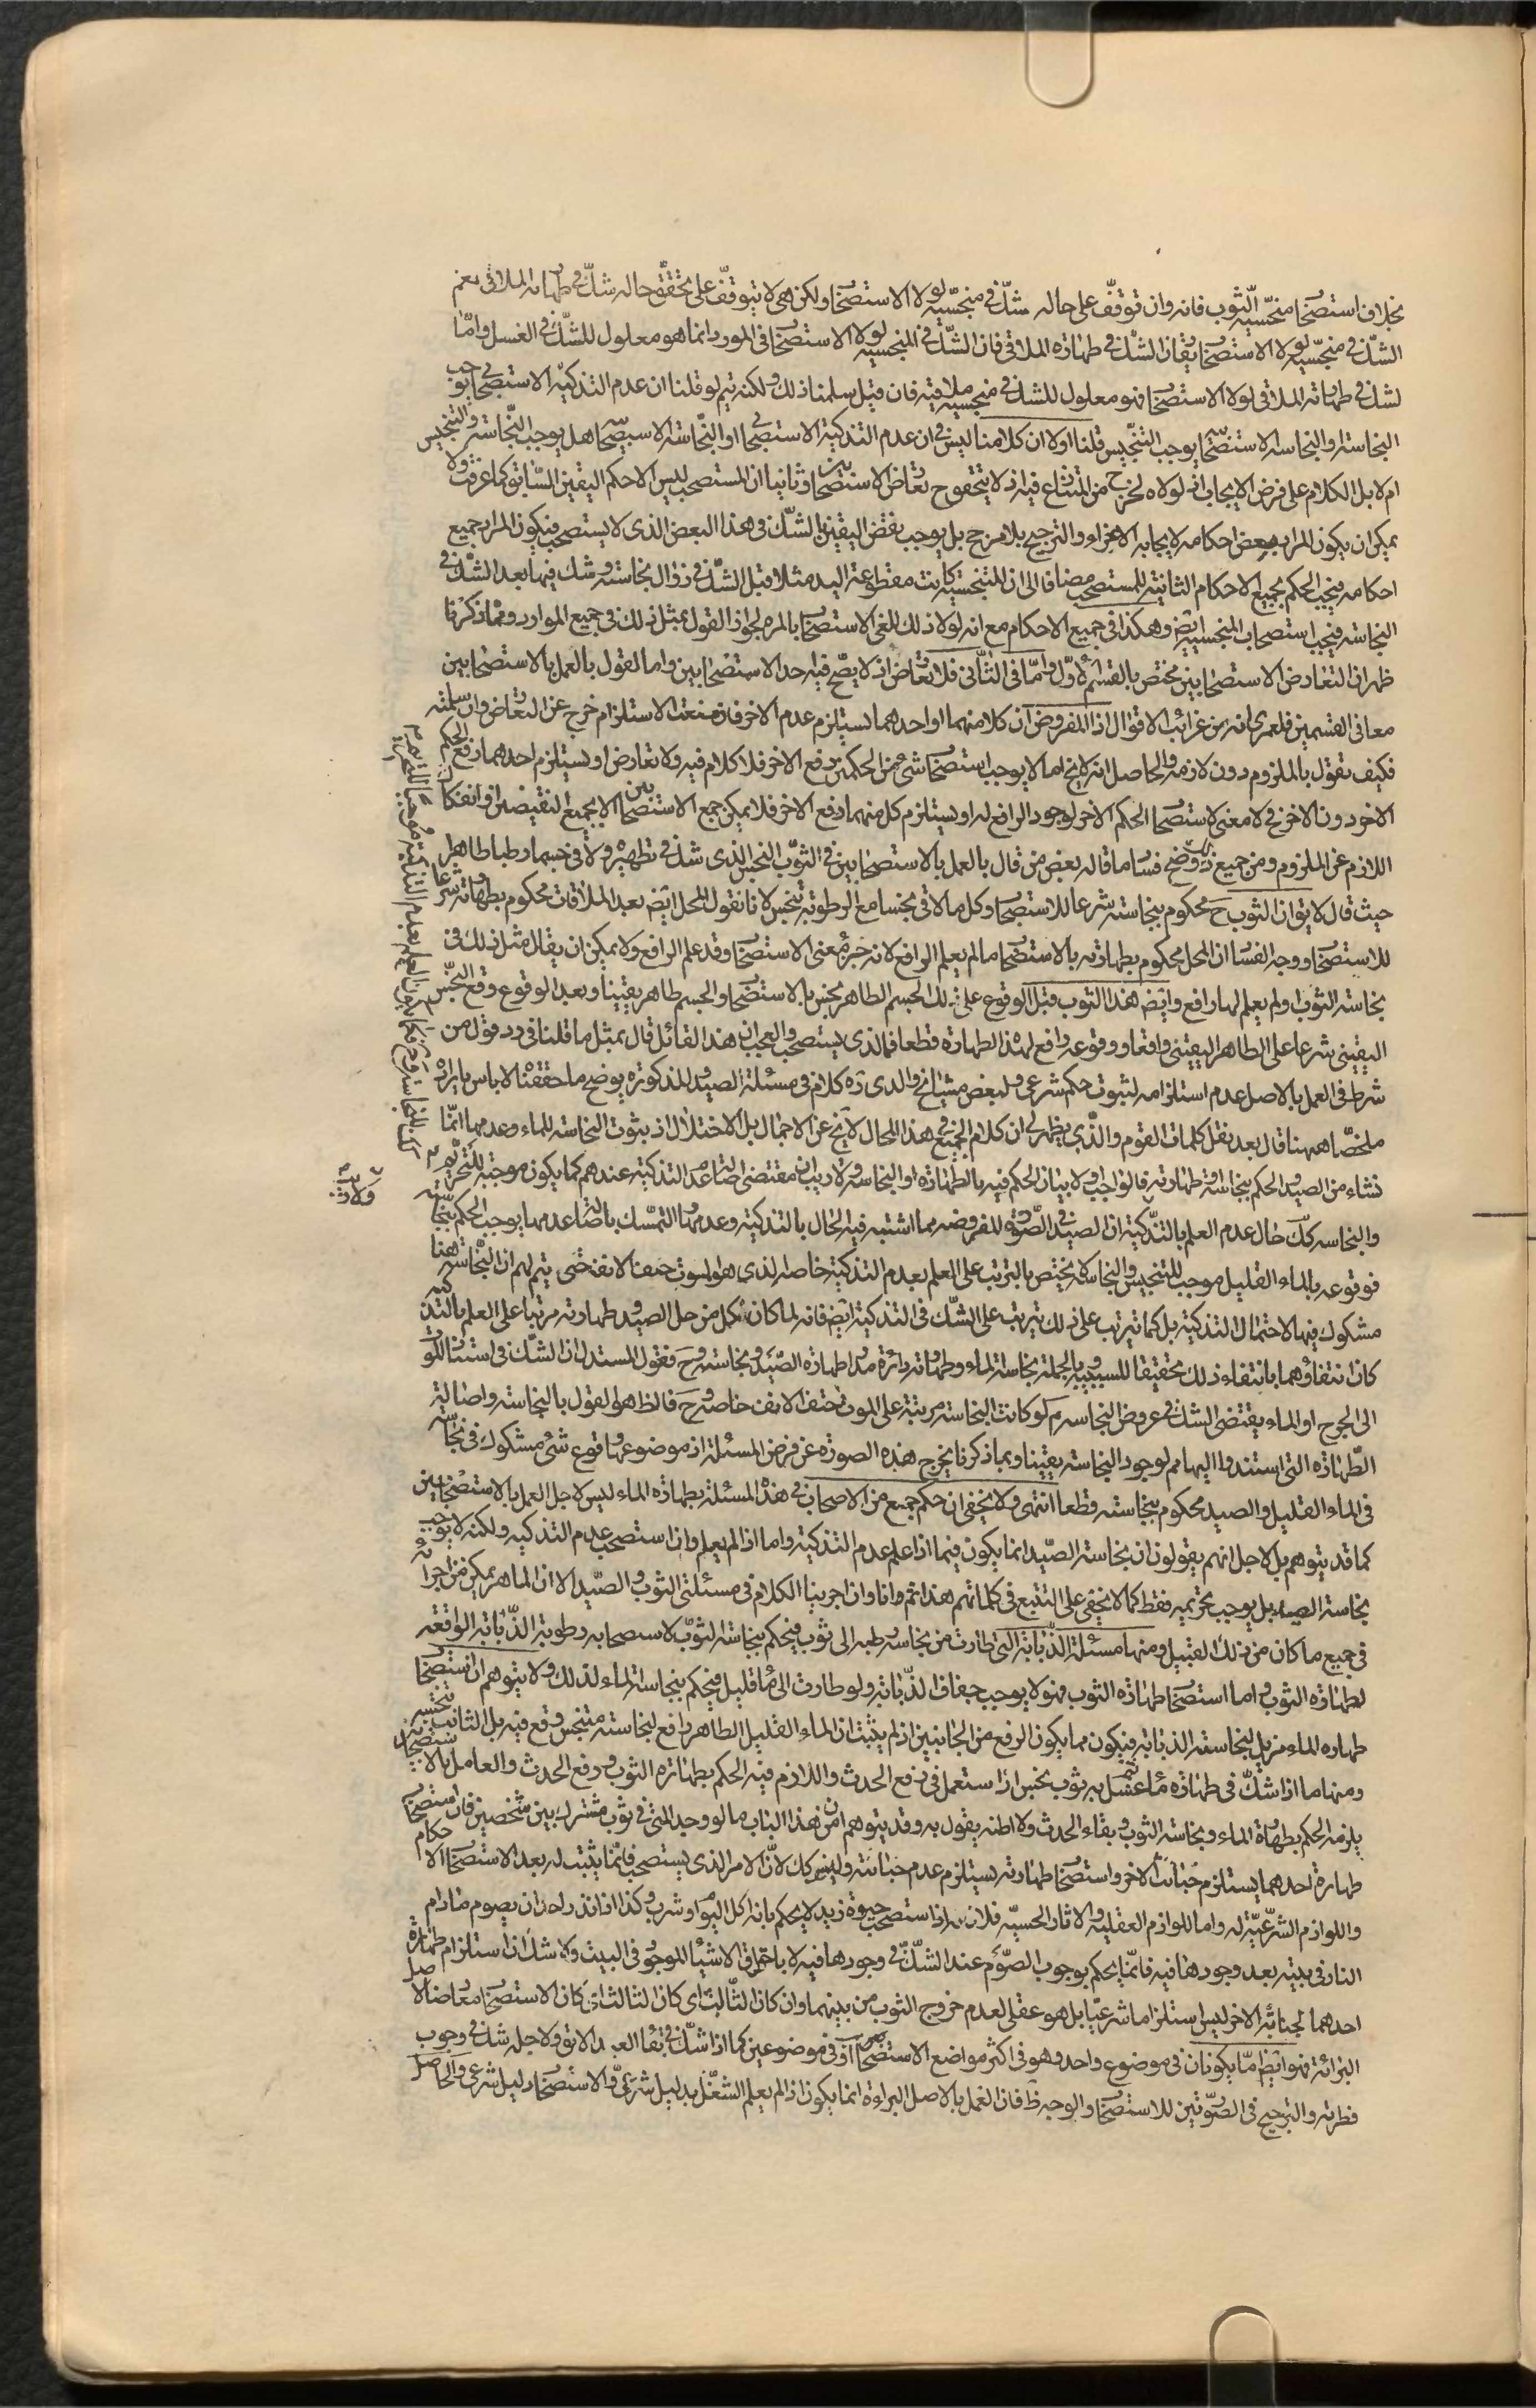 بخلاف استصحا منجسيه الثوب فانه وان توقف على حاله شك فى منجسيه لولا الاستصحا ولكن هى لا يتوقف على تحقق حاله شك فى طهاره الملاقى نعم
الشك فى منجسيه لولا الاستصحا يقارن الشك فى طهاره الملاقى فان الشك فى المنجسيه لولا الاستصحا فى المورد انما هو معلول للشك فى الغسل واما
لشك فى طهاره الملاقى لولا الاستصحا فهو معلول للشك فى منجسيه ملاقيه فان قيل سلمنا ذلك ولكنه يتم لو قلنا ان عدم التذكيه الاستصحابى يوجب
النجاسه والنجاسه الاستصحابيه يوجب التنجيس قلنا اولا ان كلامنا ليس فى ان عدم التذكيه الاستصحابى او النجاسه الاستصحابيه هل يوجب النجاسه والتنجيس
ام لا بل الكلام على فرض الايجاب اذ لولاه لخرج من المتنازع فيه اذ لا يتحقق ح تعارض الاستصحابين وثانيا ان المستصحب ليس الا حكم اليقين السابق كما عرفت ولا
يمكن ان يكون المراد بعض احكامه لايجابه الاغراء والترجيح بلا مرجح بل يوجب نقض اليقين بالشك فى هذا البعض الذى لا يستصحب فيكون المراد جميع
احكامه فيجب الحكم بجميع الاحكام الثابته للمستصحب مضافا الى ان المتنجسيه كانت مقطوعه اليد مثلا قبل الشك فى زوال نجاسته وشك فيها بعد الشك فى
النجاسه فيجب استصحاب المنجسيه ايض وهكذا فى جميع الاحكام مع انه لولا ذلك للغى الاستصحا بالمره لجواز القول بمثل ذلك فى جميع الموارد ومما ذكرنا
ظهر ان التعارض الاستصحابين مختص بالقسم الاول واما فى الثانى فلا تعارض اذ لا يصح فيه احد الاستصحابين واما القول بالعمل بالاستصحابين
معا فى القسمين فلعمرى انه من غرائب الاقوال اذ المفروض ان كلا منهما او احدهما يستلزم عدم الاخر فان منعت الاستلزام خرج عن التعارض وان سلمته
فكيف تقول بالملزوم دون لازمه والحاصل انه لا يخ اما لا يوجب استصحا شئ من الحكمين رفع الاخر فلا كلام فيه ولا تعارض او يستلزم احدهما رفع الحكم
الاخر دون الاخر فح لا معنى لاستصحا الحكم الاخر لوجود الرافع له او يستلزم كل منهما رفع الاخر فلا يمكن جمع الاستصحابين الا بجمع النقيضين او انفكاك
اللازم عن الملزوم ومن جميع ذلك وضح فسا ما قاله بعض من قال بالعمل بالاستصحابين فى الثوب النجس الذى شك فى تطهيره ولاقى جسما رطبا طاهرا
حيث قال لا يق ان الثوب ح محكوم بنجاسته شرعا للاستصحا وكل ما لاقى نجسا مع الرطوبه تنجس لانا نقول المحل ايض بعد الملاقات محكوم بطهارته شرعا
للاستصحا ووجه الفسا ان المحل محكوم بطهارته بالاستصحا ما لم يعلم الرافع لانه جزء معنى الاستصحا وقد علم الرافع ولا يمكن ان يقال مثل ذلك فى
نجاسه الثوب اولم يعلم لها رافع وايض هذا الثوب قبل الوقوع على ذلك الجسم الطاهر نجس بالاستصحا والجسم طاهر يقينا وبعد الوقوع وقع النجس
اليقينى شرعا على الطاهر اليقينى واقعا ووقوعه رافع لهذا الطهاره قطعا فما الذى يستصحب والعجب ان هذا القائل قال بمثل ما قلنا فى رد قول من
شرط فى العمل بالاصل عدم استلزامه لثبوت حكم شرعى ولبعض مشايخ والدى ره كلام فى مسئله الصيد المذكوره يوضح ما حققنا لا باس بايراده
ملخصا ههنا قال بعد نقل كلمات القوم والذى يظهر لى ان كلام الجميع فى هذا المحال لا يخ عن الاجمال بل الاختلال اذ ثبوت النجاسه للماء وعدمها انما
نشاء من الصيد والحكم بنجاسته او طهارته فالواجب اولا بيان الحكم فيه بالطهاره او النجاسه ولا ريب ان مقتضى اصاله عدم التذكيه عندهم كما يكون موجبه للتحريم
والنجاسه كك حال عدم العلم بالتذكيه ان الصيد فى الصوره المفروضه مما اشتبه فيه الحال بالتذكيه وعدمها التمسك باصاله عدمها يوجب الحكم بنجاسته
فوقوعه بالماء القليل موجب للتنجيس والنجاسه لا يختص بالترتب على العلم بعدم التذكيه خاصه الذى هو الموت حتف الانف حتى يتم لهم ان النجاسه هنا
مشكوك فيها لاحتمال التذكيه بل كما يترتب على ذلك يترتب على الشك فى التذكيه ايض فانه لما كان كل من حل الصيد وطهارته مرتبا على العلم بالتذكيه
كان انتفاؤهما بانتفاء ذلك تحقيقا للسببيه وبالجمله نجاسه الماء وطهارته دائره مدار طهاره الصيد ونجاسته وح فقول المستدل ان الشك فى استناد الموت
الى الجرح او الماء يقتضى الشك فى عروض النجاسه م لو كانت النجاسه مرتبه على الموت حتف الانف خاصه وح فالظ هو القول بالنجاسه واصاله
الطهاره التى استندوا اليها مم لوجود النجاسه يقينا وبما ذكرنا يخرج هذه الصوره عن فرض المسئله اذ موضوعها وقوع شئ مشكوك فى نجاسته
فى الماء القليل والصيد محكوم بنجاسته قطعا انتهى ولا يخفى ان حكم جمع من الاصحاب فى هذه المسئله بطهاره الماء ليس لاجل العمل بالاستصحابين
كما قد يتوهم بل لاجل انهم يقولون ان نجاسه الصيد انما يكون فيما اذا علم عدم التذكيه واما اذا لم يعلم وان استصحب عدم التذكيه ولكنه لا يوجب
نجاسه الصيد بل يوجب تحريمه فقط كما لا يخفى على المتتبع فى كلماتهم هذا ثم وانا وان اجرينا الكلام فى مسئلتى الثوب والصيد الا ان الماهر يمكن من اجرائه
فى جميع ما كان من ذلك القبيل ومنها مسئله الذبابه التى طارت من نجاسه رطبه الى ثوب فيحكم بنجاسه الثوب لاستصحابه رطوبه الذبابه الرافعه
لطهاره الثوب واما استصحا طهاره الثوب فهو لا يوجب جفاف الذبابه ولو طارت الى ماء قليل فيحكم بنجاسه الماء لذلك ولا يتوهم ان استصحا
طهاره الماء مزيل لنجاسه الذبابه فيكون مما يكون الرفع من الجانبين اذ لم يثبت ان الماء القليل الطاهر رافع لنجاسه متنجس وقع فيه بل الثابت تنجسه به
ومنها ما اذا شك فى طهاره ماء غسل به ثوب نجس اذا استعمل فى رفع الحدث واللازم فيه الحكم بطهاره الثوب ورفع الحدث والعامل بالاستصحابين
يلزمه الحكم بطهاره الماء ونجاسه الثوب وبقاء الحدث ولا اظنه يقول به وقد يتوهم ان من هذا الباب ما لو وجد المنى فى ثوب مشترك بين شخصين فان استصحا
طهاره احدهما يستلزم جنابه الاخر واستصحا طهارته يستلزم عدم جنابته وليس كك لان الامر الذى يستصحب فانما يثبت له بعد الاستصحا الاحكام
واللوازم الشرعيه له واما اللوازم العقليه والاثار الحسيه فلا اذا استصحب حيوه زيد لا يحكم بانه اكل اليوم او شرب وكذا اذا نذر احد ان يصوم مادام
النار فى بيته بعد وجودها فيه فانما يحكم بوجوب الصوم عند الشك فى وجودها فيه لا باحتراق الاشياء الموجود فى البيت ولا شك ان استلزام طهاره
احدهما لجنابه الاخر ليس استلزاما شرعيا بل هو عقلى لعدم خروج الثوب من بينهما وان كان الثالث اى كان الاستصحا معارضا لاصل
البرائه فهو ايض اما يكونان فى موضوع واحد وهو فى اكثر مواضع الاستصحا او فى موضوعين كما اذا شك فى بقاء العبد الابق ولاجله شك فى وجوب
فطرته والترجيح فى الصورتين للاستصحا والوجه ظ فان العمل بالاصل البراءه انما يكون اذا لم يعلم الشغل بدليل شرعى والاستصحا دليل شرعى والحاصل